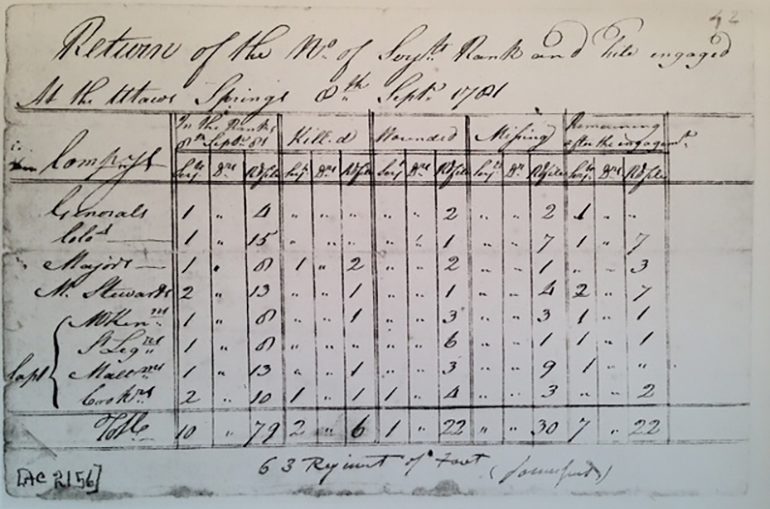 42
Return of the No. of Serjts. Rank and File engaged
At the Utaws Springs 8th Septr. 1781
Companys | In the Ranks 8th Septr. 81 | Killed | Wounded | Missing | Remaining after the engagemt.
Serjts Drs R&file | Serjt Drs R&file | Serjt Drs R&file | Serjts Drs R&file | Serjts Drs R&file
Generals 1 " 4 " " " " " 2 " " 2 1 " "
Colos. 1 " 15 " " " " " 1 " " 7 1 " 7
Majors 1 " 8 1 " 2 " " 2 " " 1 " " 3
Mr. Stewards 2 " 13 " " 1 " " 1 " " 4 2 " 7
McKen 1 " 8 " " 1 " " 3 " " 3 1 " 1
St Leg 1 " 8 " " " " " 6 " " 1 1 " 1
Capt 1 " 13 " " 1 " " 3 " " 9 1 " "
2 " 10 1 " 1 1 " 4 " " 3 " " 2
Totl 10 " 79 2 " 6 1 " 22 " " 30 7 " 22
63 Regiment of Foot
[AC 2156]